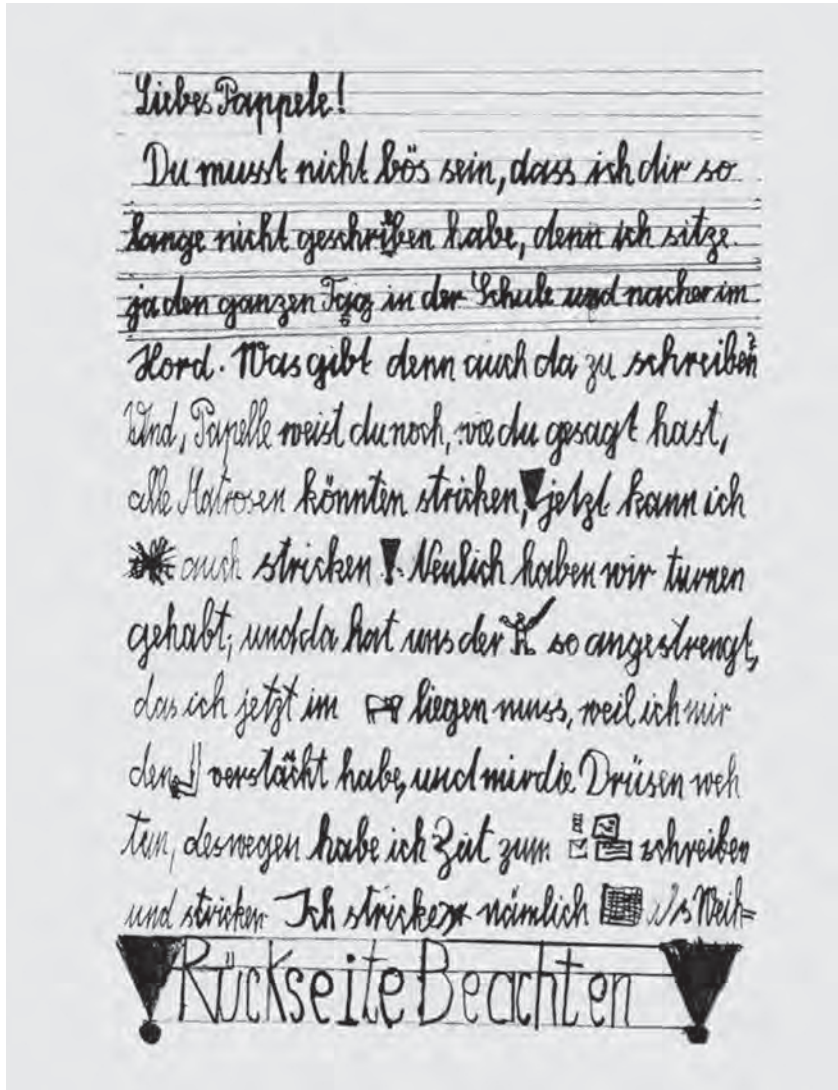 Liebes Pappele!
Du musst nicht bös sein, dass ich dir so
lange nicht geschriben habe, denn ich sitze
ja den ganzen Tag in der Schule und nacher im
Hord. Was gibt denn auch da zu schreiben?
Und, Papelle weist du noch, wie du gesagt hast,
alle Matrosen könnten stricken, jetzt kann ich
auch stricken! Neulich haben wir turnen
gehabt, und da hat uns der so angestrengt,
das ich jetzt im liegen muss, weil ich mir
den verstächt habe, und mir die Drüsen weh
tun, deswegen habe ich Zeit zum schreiben
und stricken Ich stricke nämlich als Weih=
Rückseite Beachten